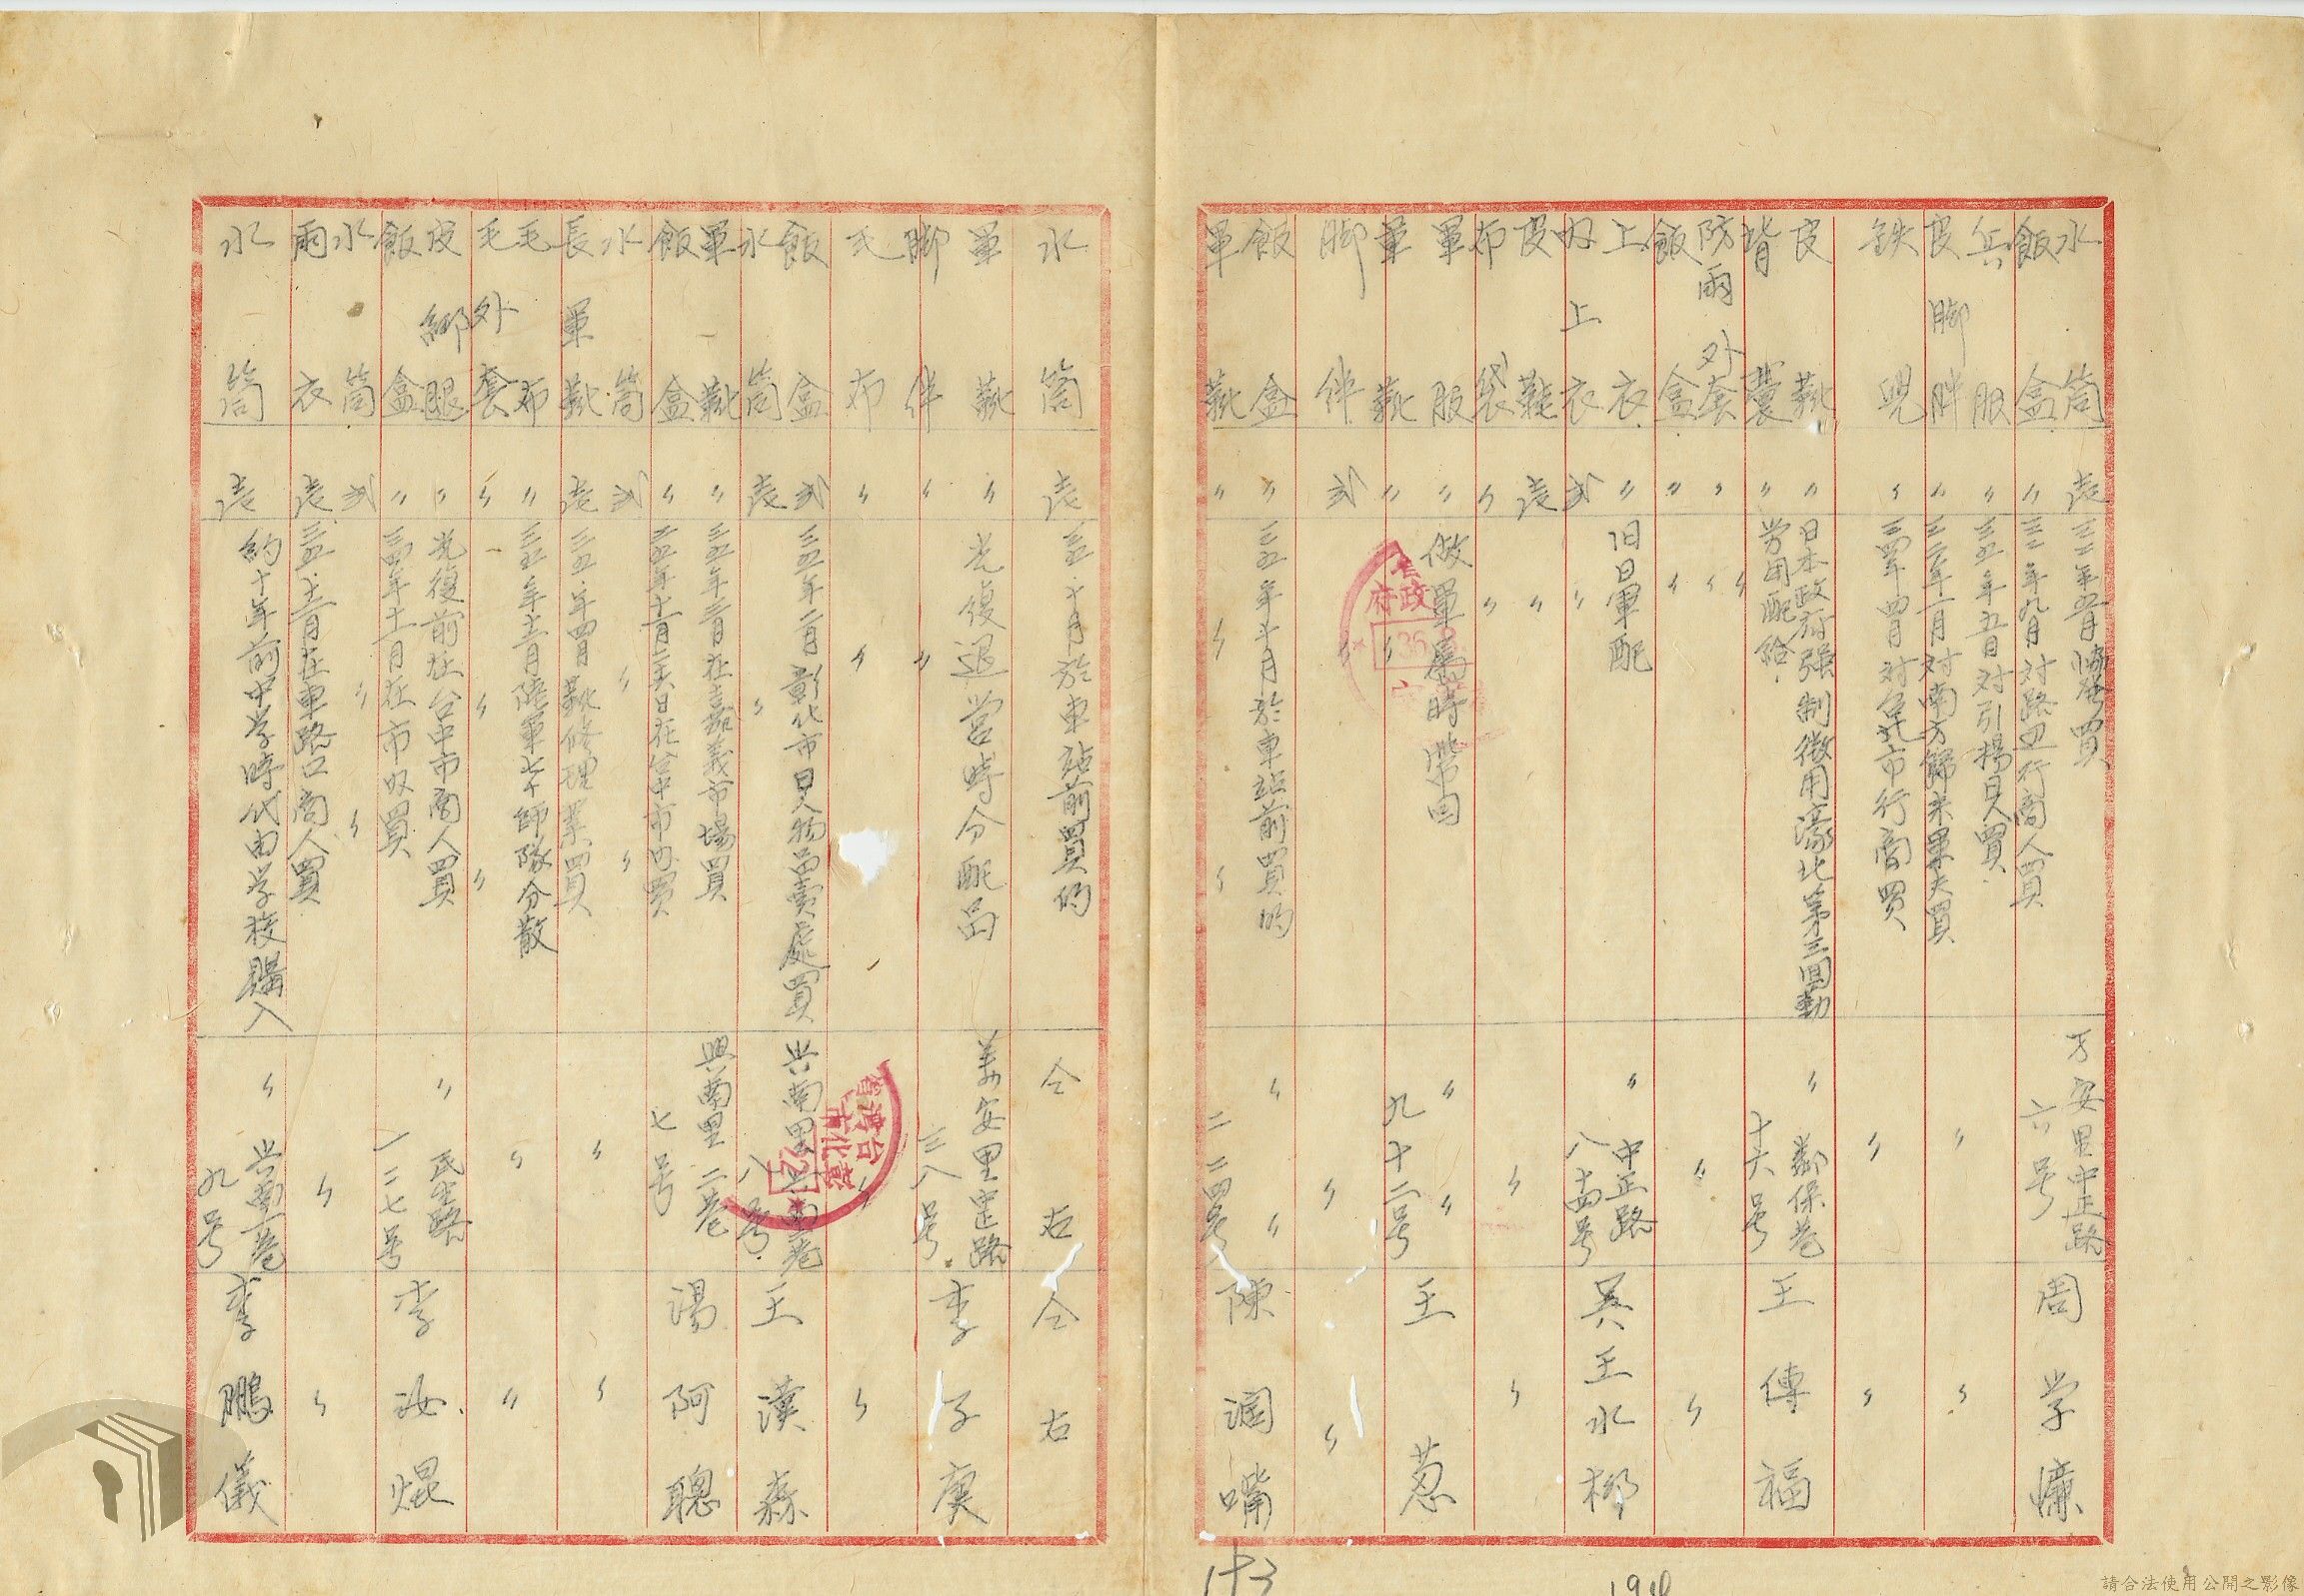 水筒 壱 三二年五月 買 万安里中正路 周学廉
飯盒 〃 三二年九月対路辺行商人買 六号
兵服 〃 三五年五月対引揚日人買
皮脚絆 〃 三二年一月対南方歸来軍夫買 〃 〃
鉄兜 〃 三四年四月対台北市行商買 〃 〃
皮靴 〃 日本政府强制徴用濠北第三回勤 〃 鄰保巷 王傳福
背囊 〃 労用配給 十六号
防雨外套 〃 〃
飯盒 〃 〃 〃 〃
上衣 〃 旧日軍配 〃 中正路 吳王水柳
内上衣 弍 〃 八十四号
皮鞋 壱 〃
布袋 〃 〃 〃 〃
軍服 〃 做軍属時帶回 〃 〃 王葱
軍靴 〃 〃 九十二号
脚絆 弍 〃 〃 〃
飯盒 〃 三五年十月於車站前買的 〃 〃 陳潤嘴
軍靴 〃 〃 〃 二二四号
水筒 壱 三五.十月於車站前買的 仝右 仝右
軍靴 〃 光復退營時分配品 美安里 路 李子庚
脚絆 〃 〃 三八号
毛布 〃 〃 〃 〃
飯盒 弍 三五年二月彰化市日人物品賣處買 興南里 巷 王漢森
水筒 壱 〃 八号
軍靴 〃 三五年三月在嘉義市場買 興南里二巷 湯阿聰
飯盒 〃 三五年十二月 日在台中市内買 七号
水筒 弍 〃 〃 〃 〃
長軍靴 壱 三五.年四月靴修理業買
毛布 〃 三五年十二月陸軍七十師隊分散 〃 〃
毛外套 〃 〃 〃
皮綁腿 〃 光復前在台中市商人買 〃 民生路 李汝焜
飯盒 〃 三四年十二月在市収買 一二七号
水筒 弍 〃 〃
雨衣 壱 三五.十二月在車路口商人買 〃 〃
水筒 壱 約十年前中学時代由学校購入 〃 興南一巷 李鵬儀
九号
省政府
36.8.
台灣省
彰化市
請合法使用公開之影像